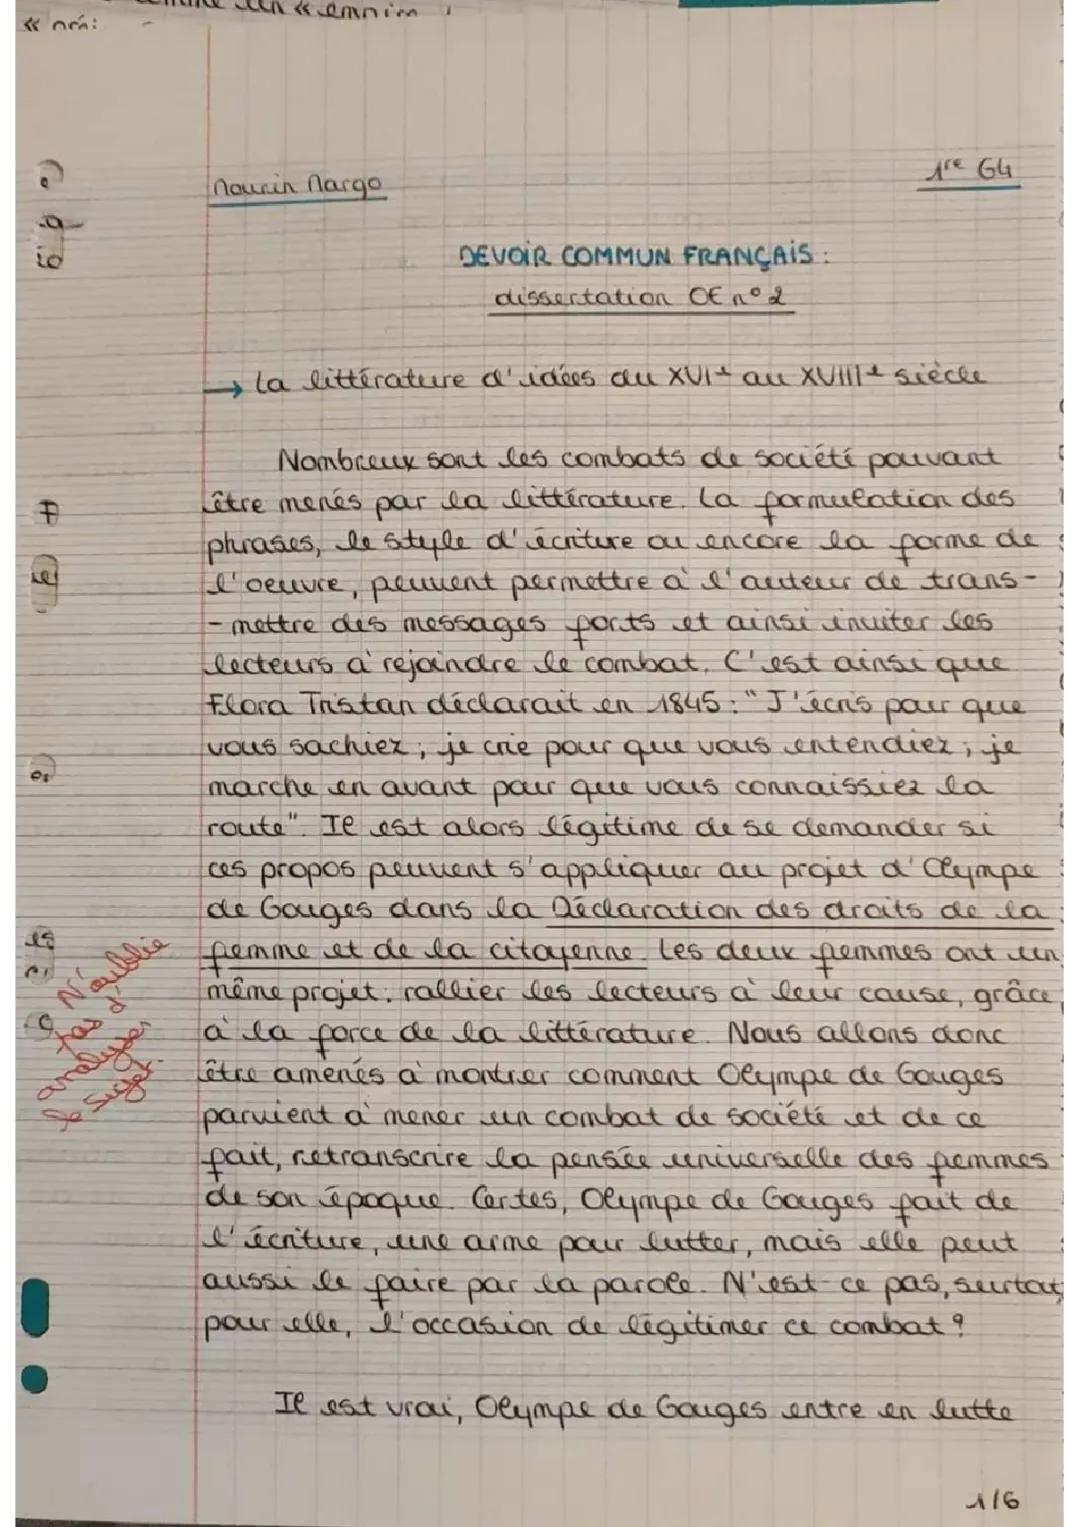 Mourin Margo
1re G4
DEVOIR COMMUN FRANÇAIS :
dissertation OE n°2
→ La littérature d'idées du XVIe au XVIIIe siècle
Nombreux sont les combats de société pouvant
être menés par la littérature. La formulation des
phrases, le style d'écriture ou encore la forme de
l'oeuvre, peuvent permettre à l'auteur de trans-
-mettre des messages forts et ainsi inviter les
lecteurs à rejoindre le combat. C'est ainsi que
Flora Tristan déclarait en 1845 : "J'écris pour que
vous sachiez ; je crie pour que vous entendiez ; je
marche en avant pour que vous connaissiez la
route". Il est alors légitime de se demander si
ces propos peuvent s'appliquer au projet d'Olympe
de Gouges dans la Déclaration des droits de la
femme et de la citoyenne. Les deux femmes ont un
même projet : rallier les lecteurs à leur cause, grâce
à la force de la littérature. Nous allons donc
être amenés à montrer comment Olympe de Gouges
parvient à mener un combat de société et de ce
fait, retranscrire la pensée universelle des femmes
de son époque. Certes, Olympe de Gouges fait de
l'écriture, une arme pour lutter, mais elle peut
aussi le faire par la parole. N'est-ce pas, surtout
pour elle, l'occasion de légitimer ce combat ?
N'oublie
pas d'
analyser
le sujet.
Il est vrai, Olympe de Gouges entre en lutte
1/6